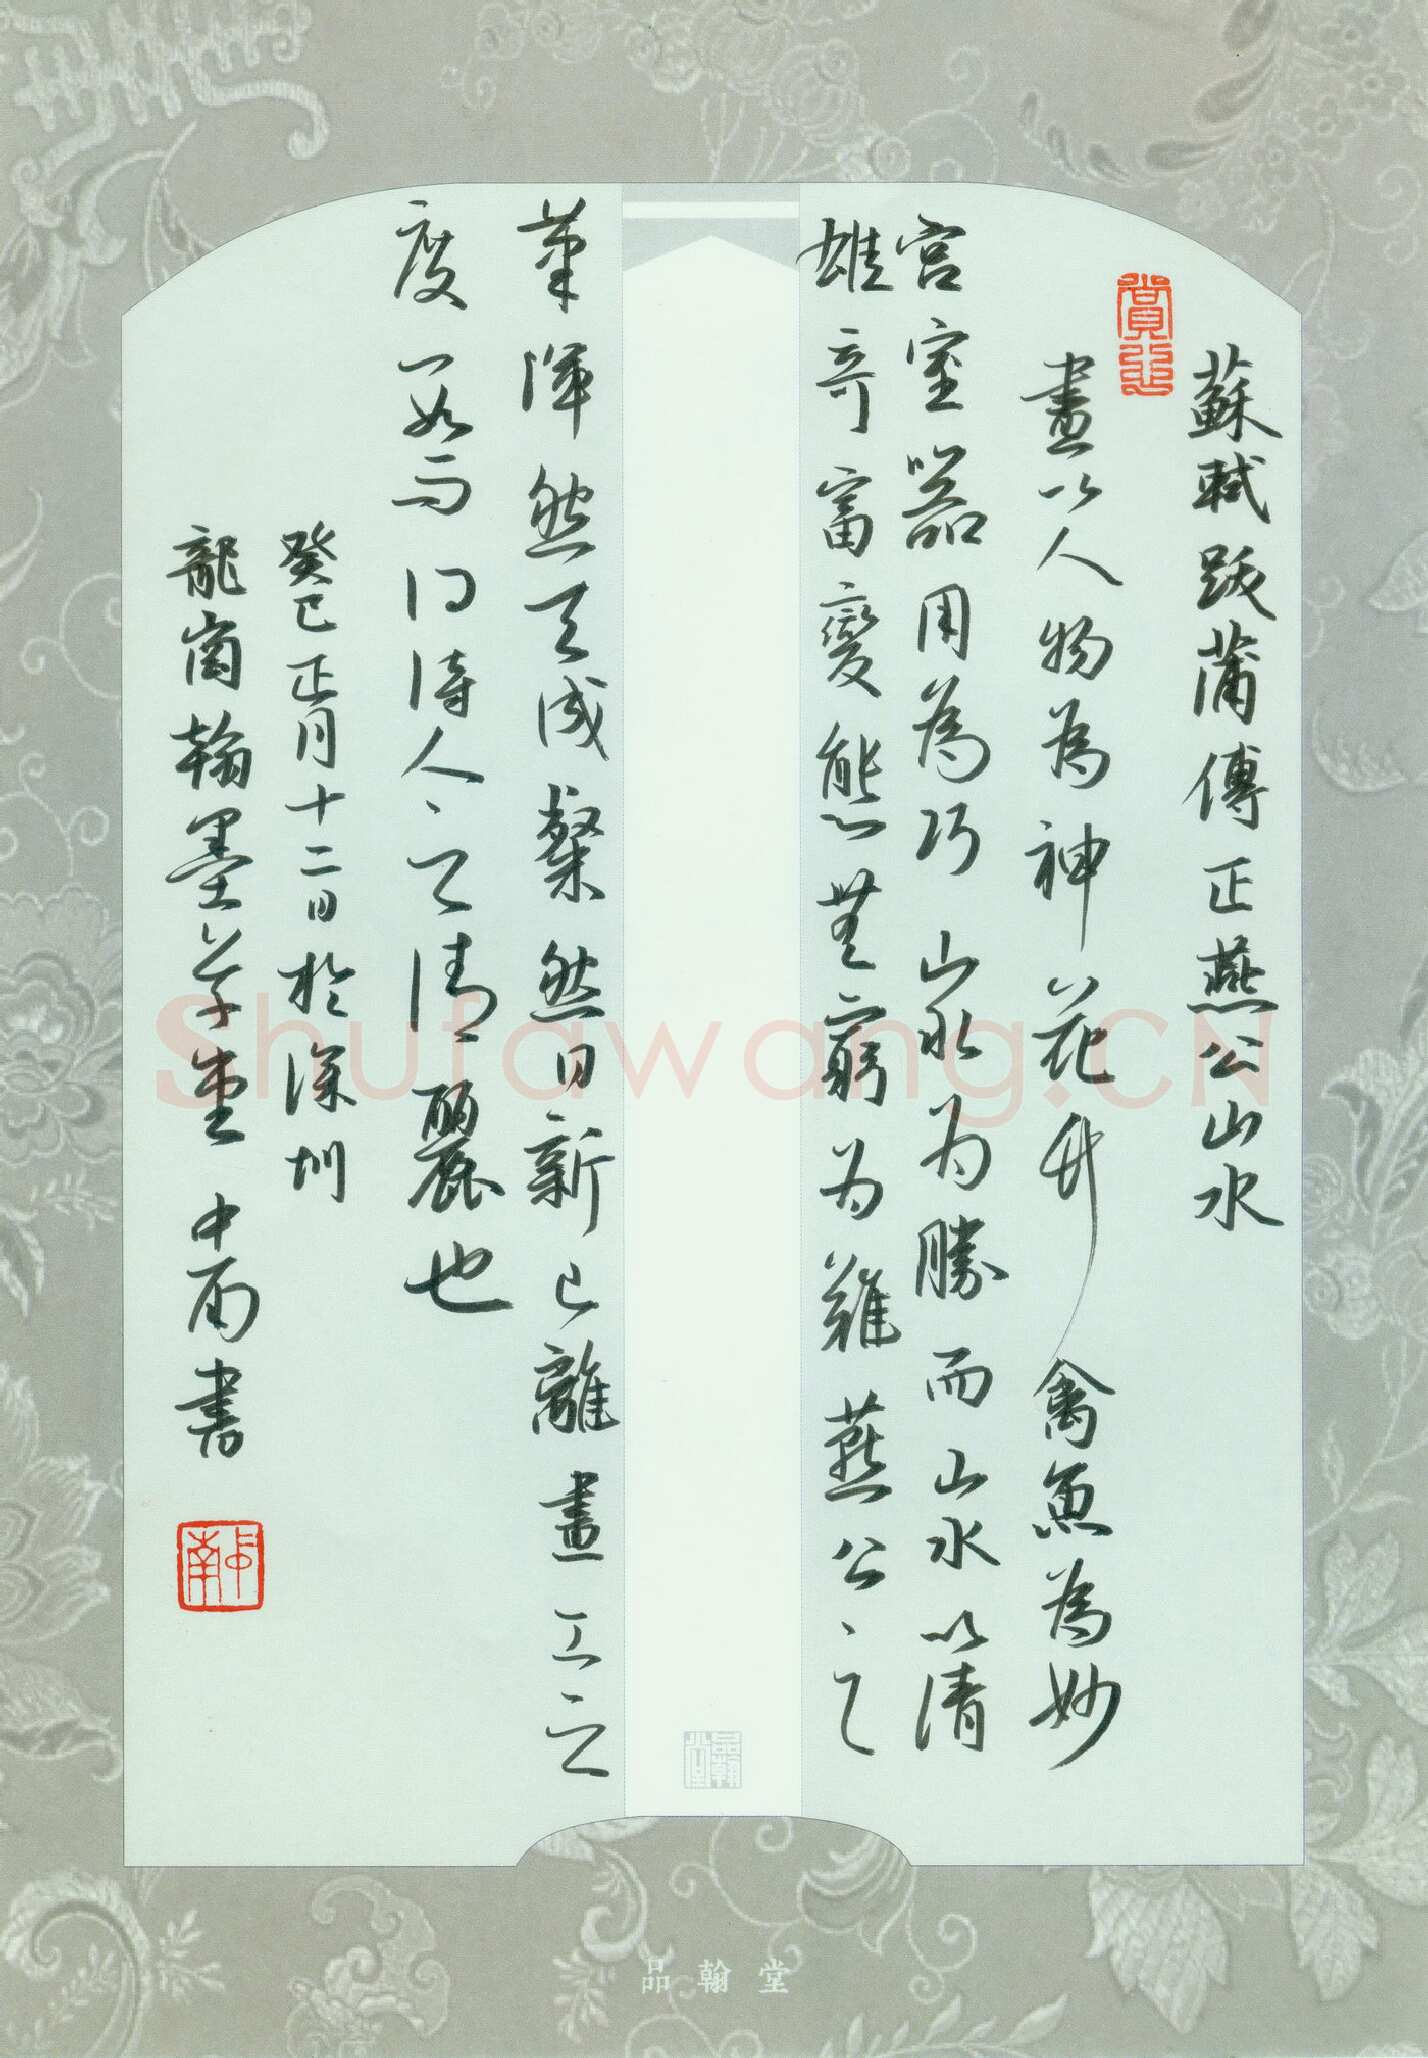 蘇軾跋蒲傳正燕公山水
畫以人物為神花竹禽魚為妙
宮室器用為巧山水为勝而山水以清
雄奇富變態無窮为難燕公之
筆渾然天成粲然日新已離畫工之
度數而得詩人之清麗也
癸巳正月十二日於深圳
龍崗翰墨草堂中南書
品翰堂
Shufawang.CN
中南
品翰堂